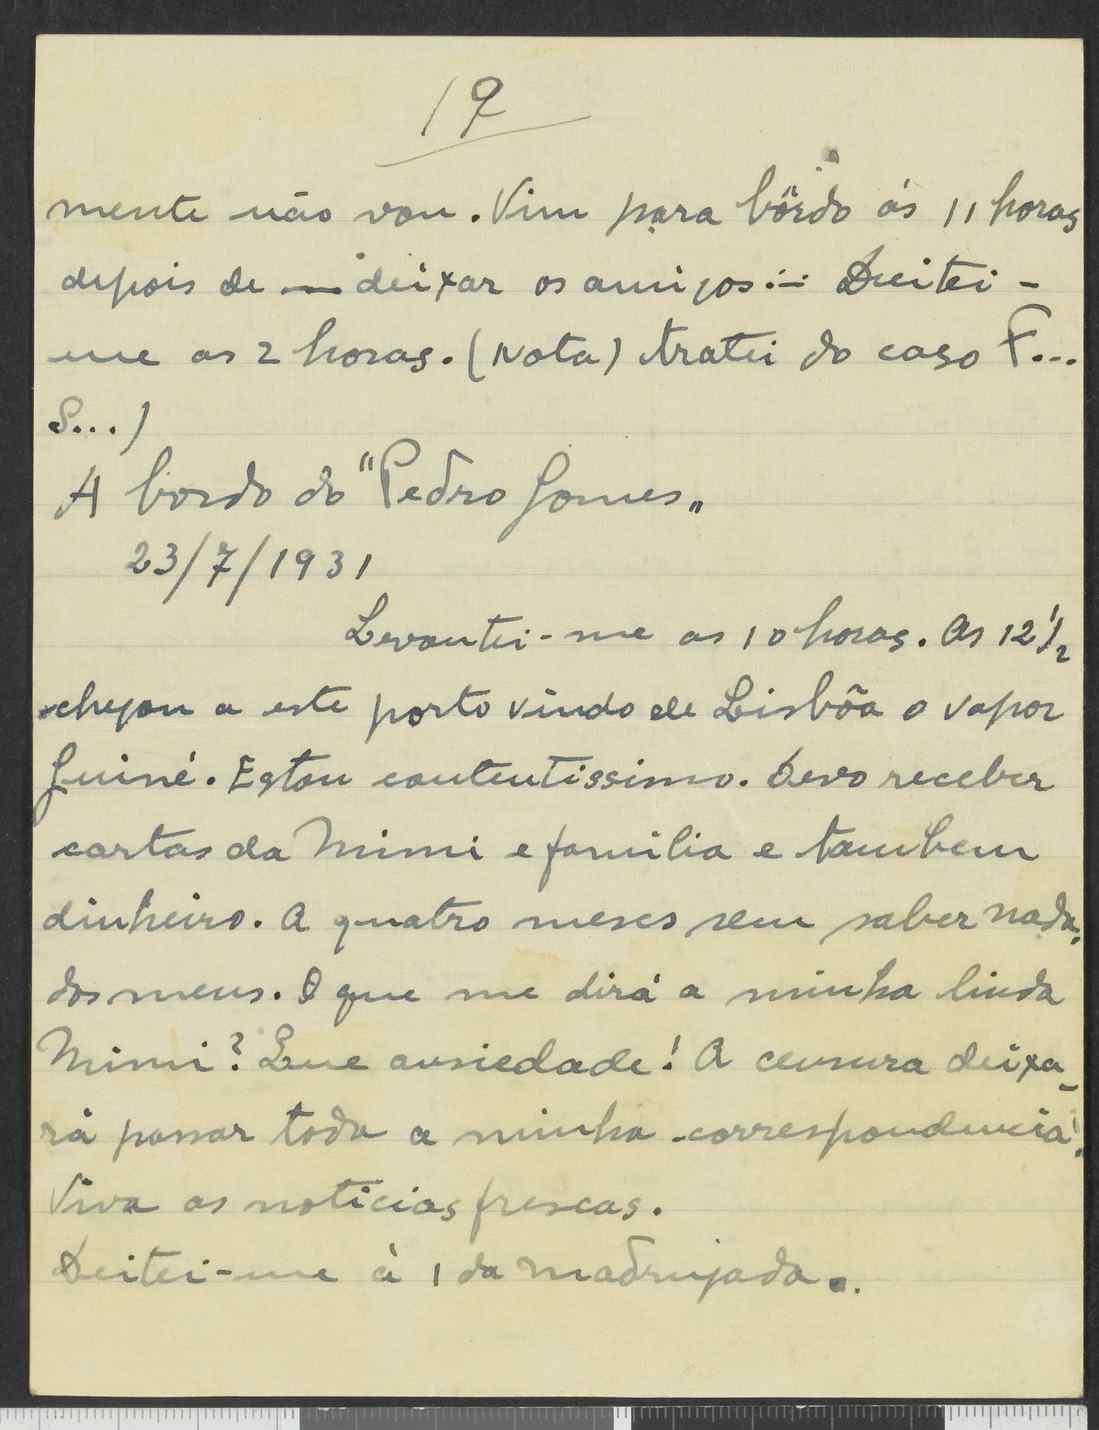 19
mente não vou. Vim para bôrdo ás 11 horas
depois de deixar os amigos :- Deitei-
me as 2 horas. (Nota) tratei do caso F...
S...)
A bordo do "Pedro Gomes„
23/7/1931
Levantei-me as 10 horas. As 12 1/2
chegou a este porto vindo de Lisbôa o vapor
Guiné. Estou contentissimo. Devo receber
cartas da Mimi e familia e tambem
dinheiro. A quatro meses sem saber nada,
dos meus. O que me dirá a minha linda
Mimi? Que ansiedade! A censura deixa-
rá passar toda a minha correspondencia?
Viva as noticias frescas.
Deitei-me á 1 da madrugada.